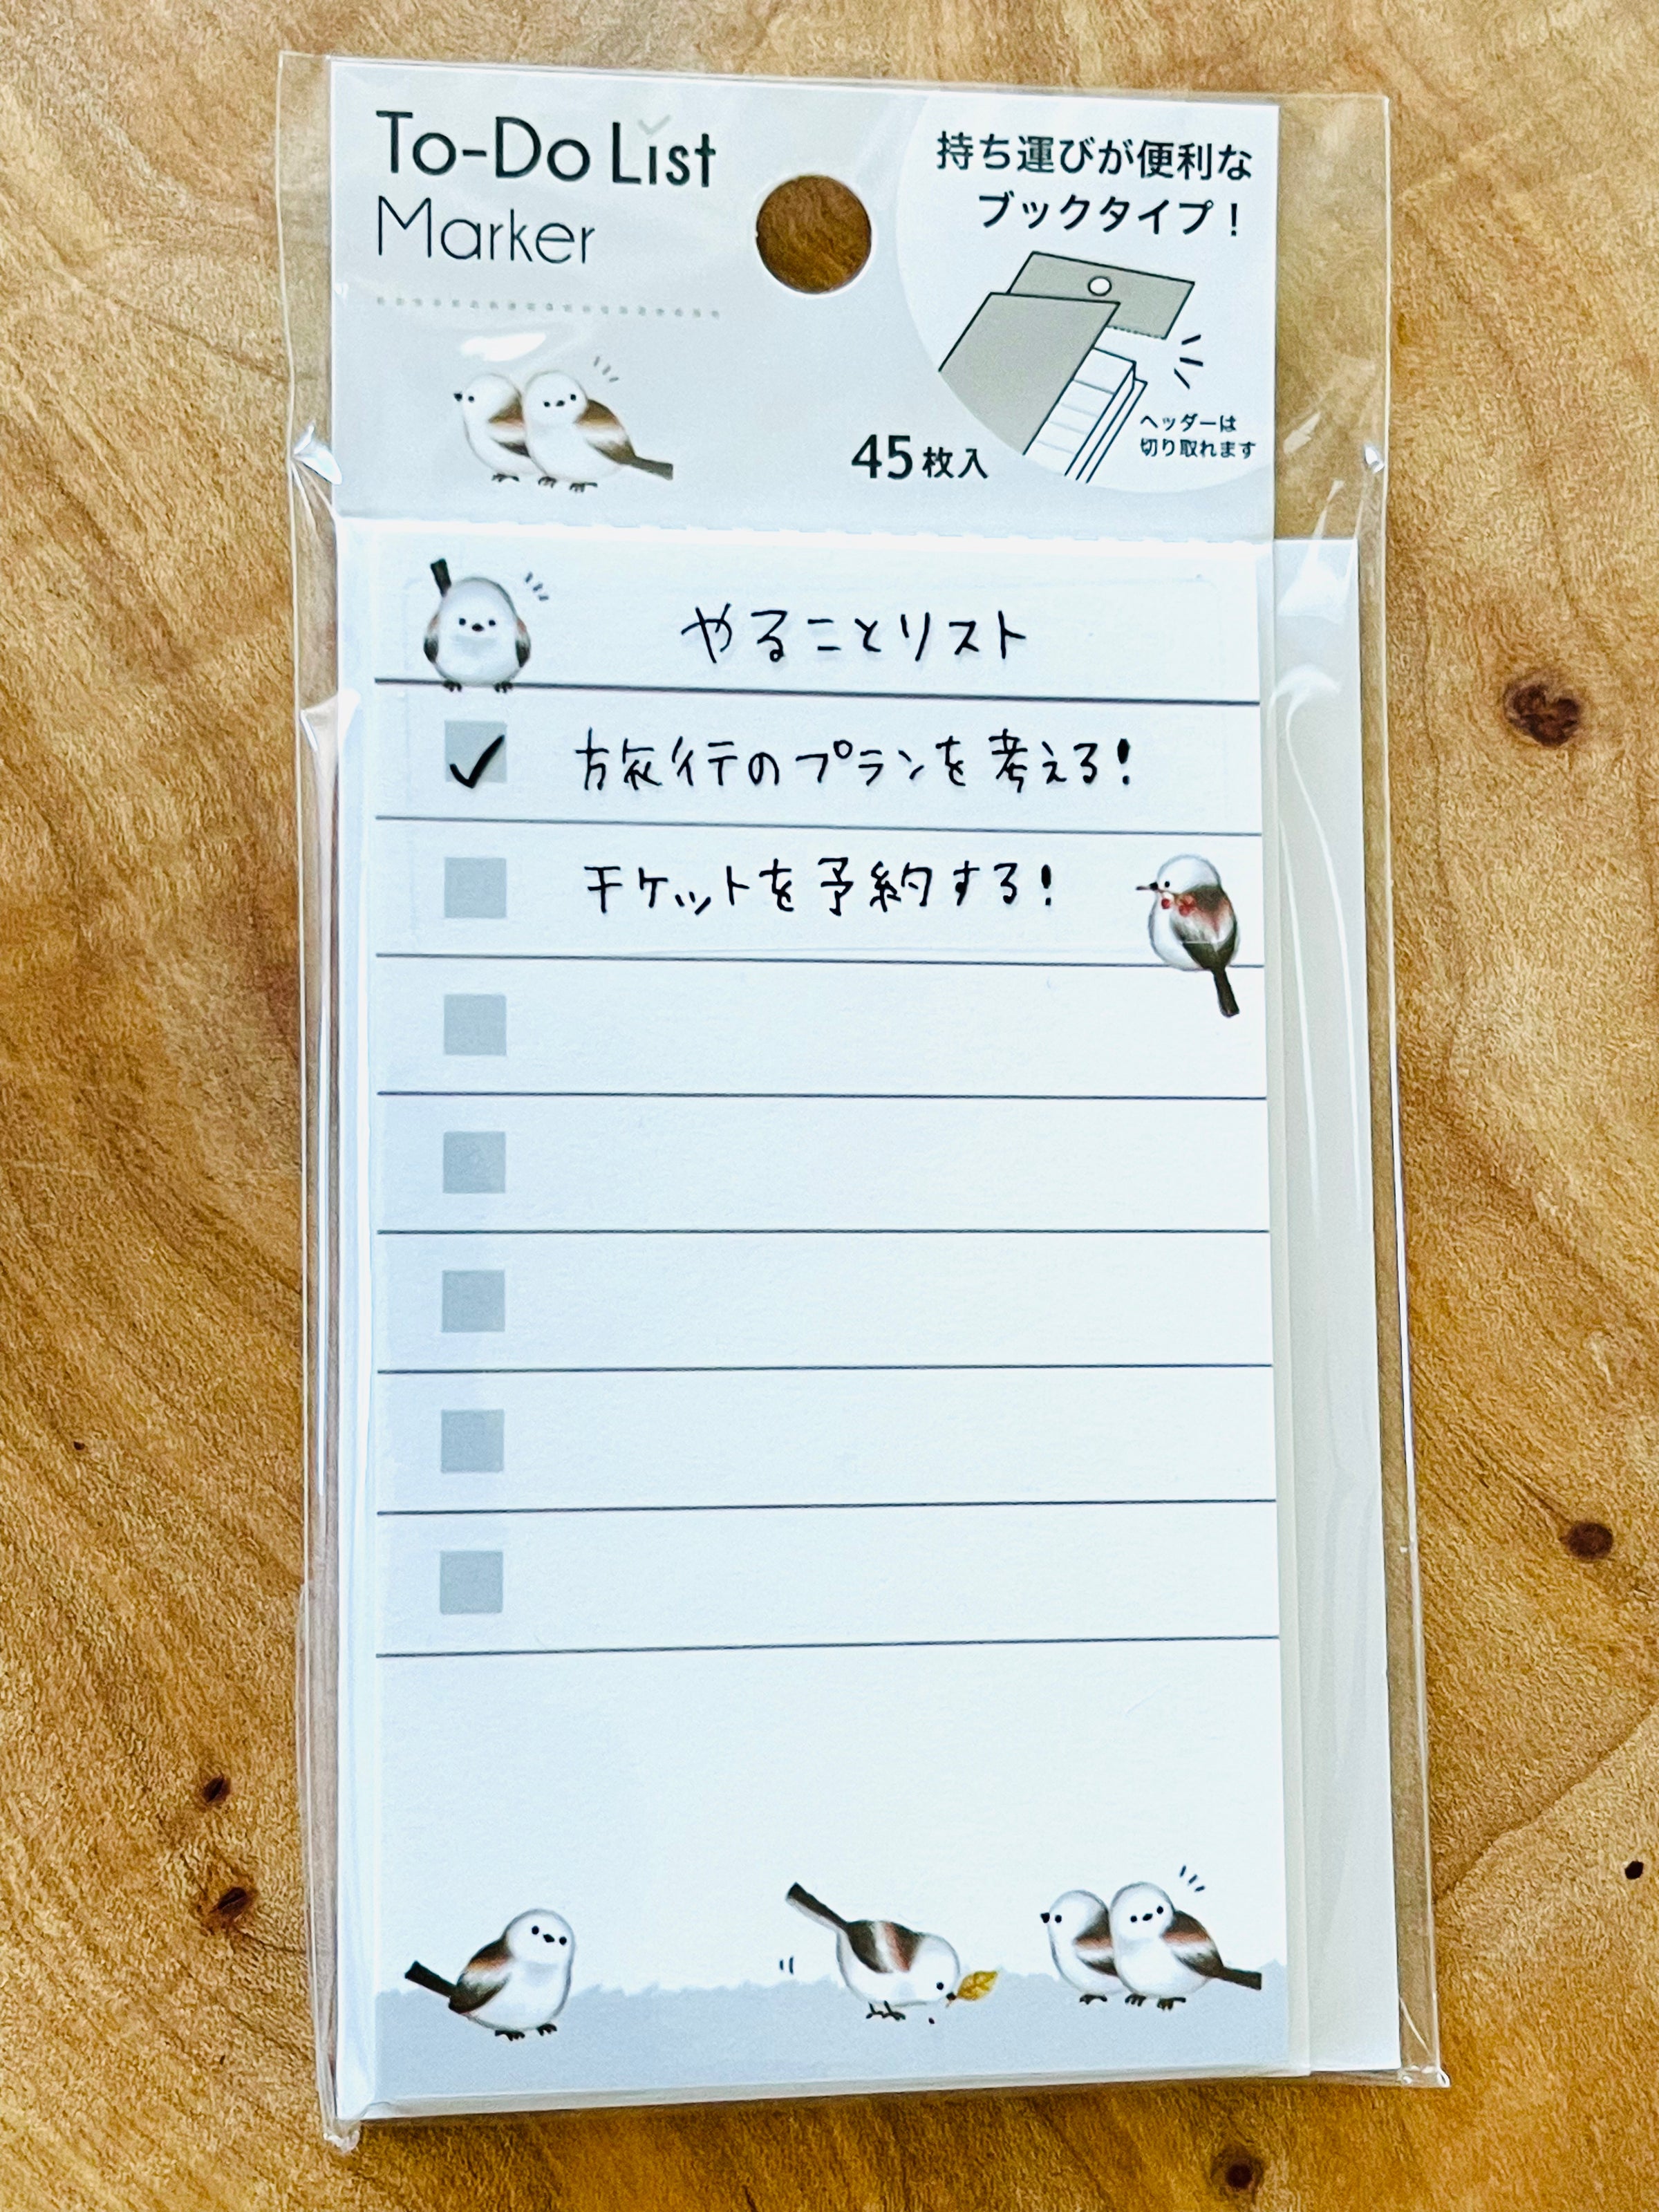 To-Do List
Marker
持ち運びが便利な
ブックタイプ！
ヘッダーは
切り取れます
45枚入
やることリスト
旅行のプランを考える！
チケットを予約する！